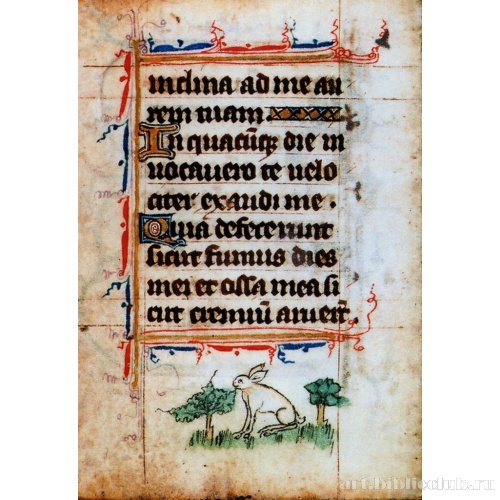 inclina ad me au
rem tuam
In quacūqȝ die in
uocauero te uelo
citer exaudi me .
Quia defecerunt
sicut fumus dies
mei et ossa mea si
cut cremiū aruerͭ .
art.biblioclub.ru